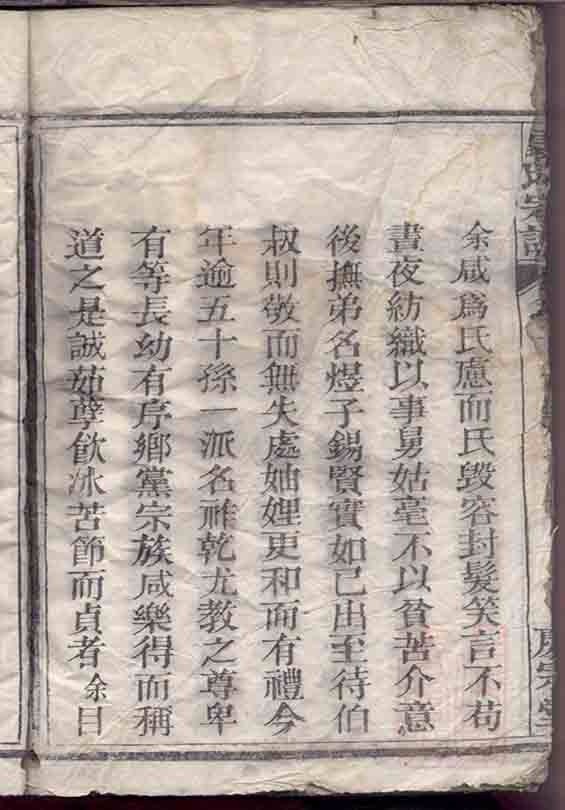 余咸爲氏慮而氏毀容封髮笑言不苟
晝夜紡織以事舅姑毫不以貧苦介意
後撫弟名煜子錫賢實如己出至待伯
叔則敬而無失處妯娌更和而有禮今
年逾五十孫一派名祚乾尤教之尊卑
有等長幼有序鄉黨宗族咸樂得而稱
道之是誠茹孽飲冰苦節而貞者余曰
氏宗譜